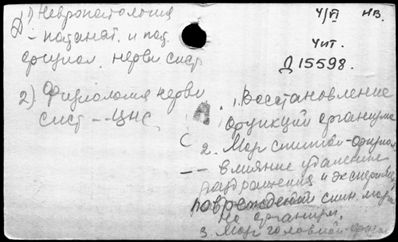 1) Невропатология
- патанат. и пат.
физиол. нерви сист
2) Физиология нерви
сист -- ЦНС
4/VI нв.
Чит.
Д 15598.
1. Восстановление
функций организма
2. Мозг спинной-физиол
-- влияние удаления
раздражения и эксперим
повреждений спин. мозга
на организм.
3. Мозг головной-физиол